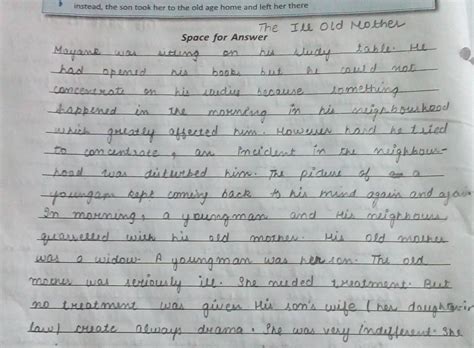 instead, the son took her to the old age home and left her there
The Ill Old Mother
Space for Answer
Mayank was sitting on his study table. He
had opened his books but he could not
concentrate on his studies because something
happened in the morning in his neighbourhood
which greatly affected him. However hard he tried
to concentrate, an incident in the neighbour-
hood was disturbed him. The picture of a
youngam kept coming back to his mind again and again
In morning, a youngman and His neighbours
quarrelled with his old mother. His old mother
was a widow. A youngman was her son. The old
mother was seriously ill. She needed treatment. But
no treatment was given His son's wife (her daughter in
law) create always drama. She was very indifferent. She